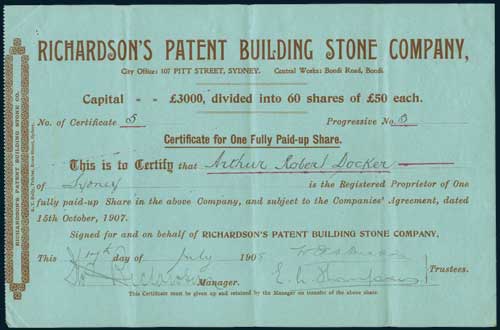 RICHARDSON'S PATENT BUILDING STONE COMPANY,
City Office: 107 PITT STREET, SYDNEY. Central Works: Bondi Road, Bondi.
Capital - - £3000, divided into 60 shares of £50 each.
No. of Certificate 5 Progressive No. 5
Certificate for One Fully Paid-up Share.
This is to Certify that Arthur Robert Docker
of Sydney is the Registered Proprietor of One
fully paid-up Share in the above Company, and subject to the Companies' Agreement, dated
15th October, 1907.
Signed for and on behalf of RICHARDSON'S PATENT BUILDING STONE COMPANY,
This day of July 190
Richardson Manager. Trustees.
This Certificate must be given up and retained by the Manager on transfer of the above share.
RICHARDSON'S PATENT BUILDING STONE CO.